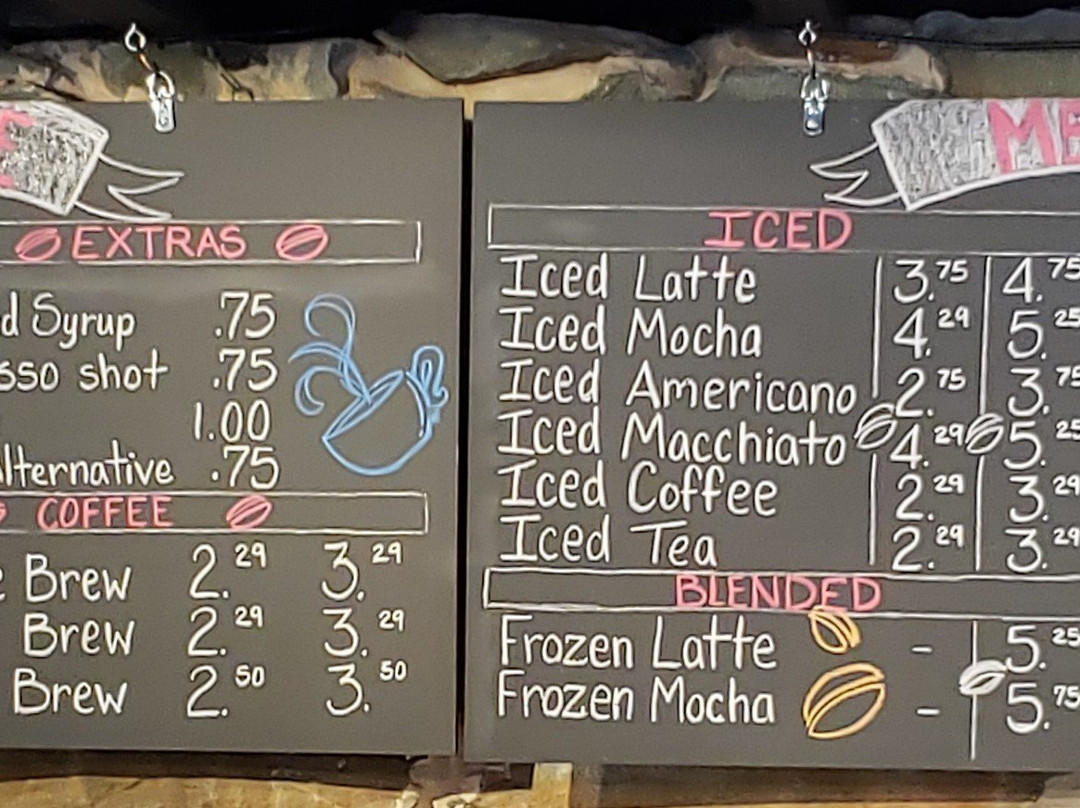 EXTRAS
d Syrup .75
sso shot .75
1.00
lternative .75
COFFEE
Brew 2.29 3.29
Brew 2.29 3.29
Brew 2.50 3.50
ME
ICED
Iced Latte 3.75 4.75
Iced Mocha 4.29 5.25
Iced Americano 2.75 3.75
Iced Macchiato 4.29 5.25
Iced Coffee 2.29 3.29
Iced Tea 2.29 3.29
BLENDED
Frozen Latte - 5.25
Frozen Mocha - 5.75